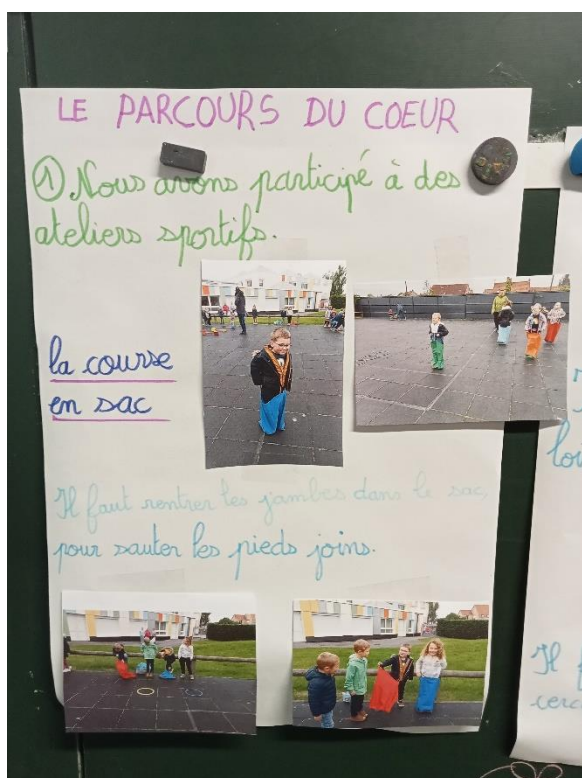 LE PARCOURS DU COEUR
① Nous avons participé à des
ateliers sportifs.
la course
en sac
Il faut rentrer les jambes dans le sac,
pour sauter les pieds joins.
Il
cerc